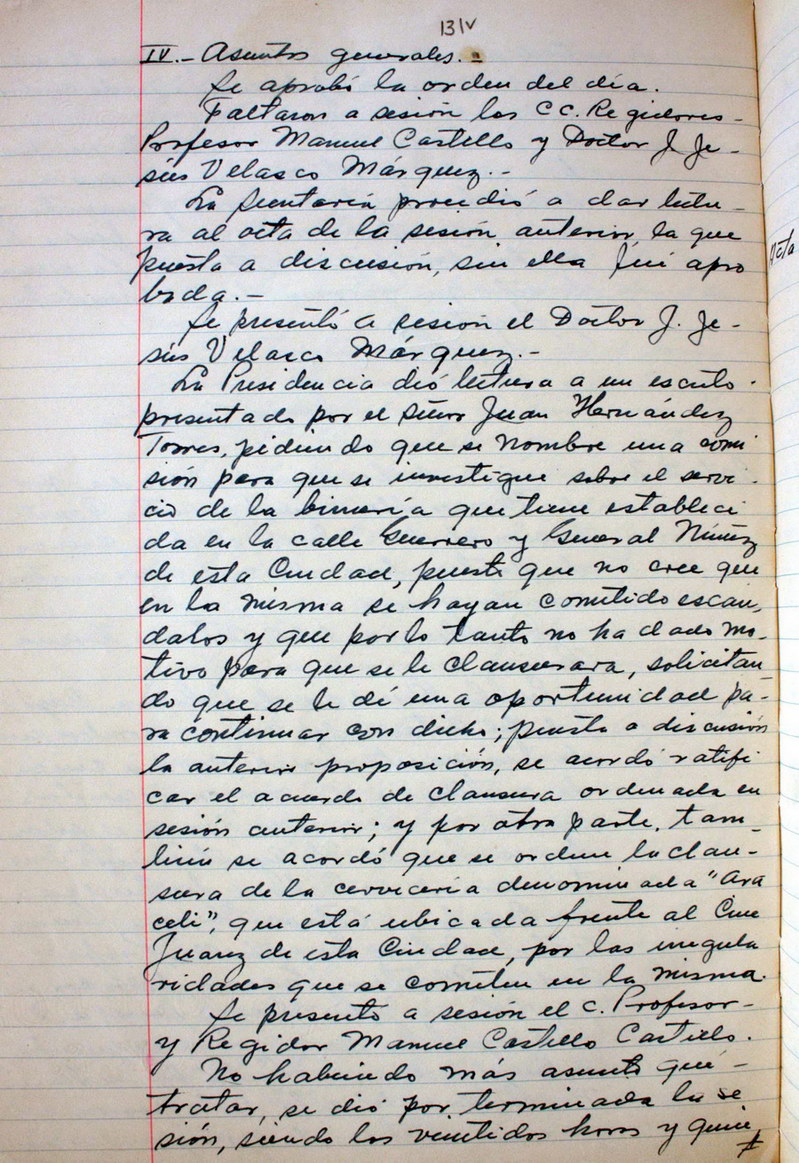 131v
IV.- Asuntos generales.-
Se aprobó la orden del día.
Faltaron a sesión los CC. Regidores-
Profesor Manuel Castello y Doctor J. Je-
sús Velasco Márquez.-
La Secretaría procedió a dar lectu-
ra al acta de la sesión anterior, la que
puesta a discusión, sin ella fué apro
bada.-
Se presentó a sesión el Doctor J. Je-
sús Velasco Márquez.-
La Presidencia dió lectura a un escrito-
presentado por el señor Juan Hernández
Torres, pidiendo que se nombre una comi
sión para que se investigue sobre el servi-
cio de la birriería que tiene estableci
da en la calle Guerrero y General Núñez
de esta Ciudad, puesto que no cree que
en la misma se hayan cometido escán-
dalos y que por lo tanto no ha dado mo-
tivo para que se le clausurara, solicitan-
do que se le dé una oportunidad pa-
ra continuar con dicha; puesta a discusión
la anterior proposición, se acordó ratifi
car el acuerdo de clausura ordenada en
sesión anterior; y por otra parte, tam-
bién se acordó que se ordene la clau-
sura de la cervecería denominada "Ara
celi", que está ubicada frente al Cine
Juarez de esta Ciudad, por las irregula
ridades que se cometen en la misma.
Se presentó a sesión el C. Profesor-
y Regidor Manuel Castello Castillo.
No habiendo más asunto que-
tratar, se dió por terminada la se
sión, siendo las veintidos horas y quin
Acta